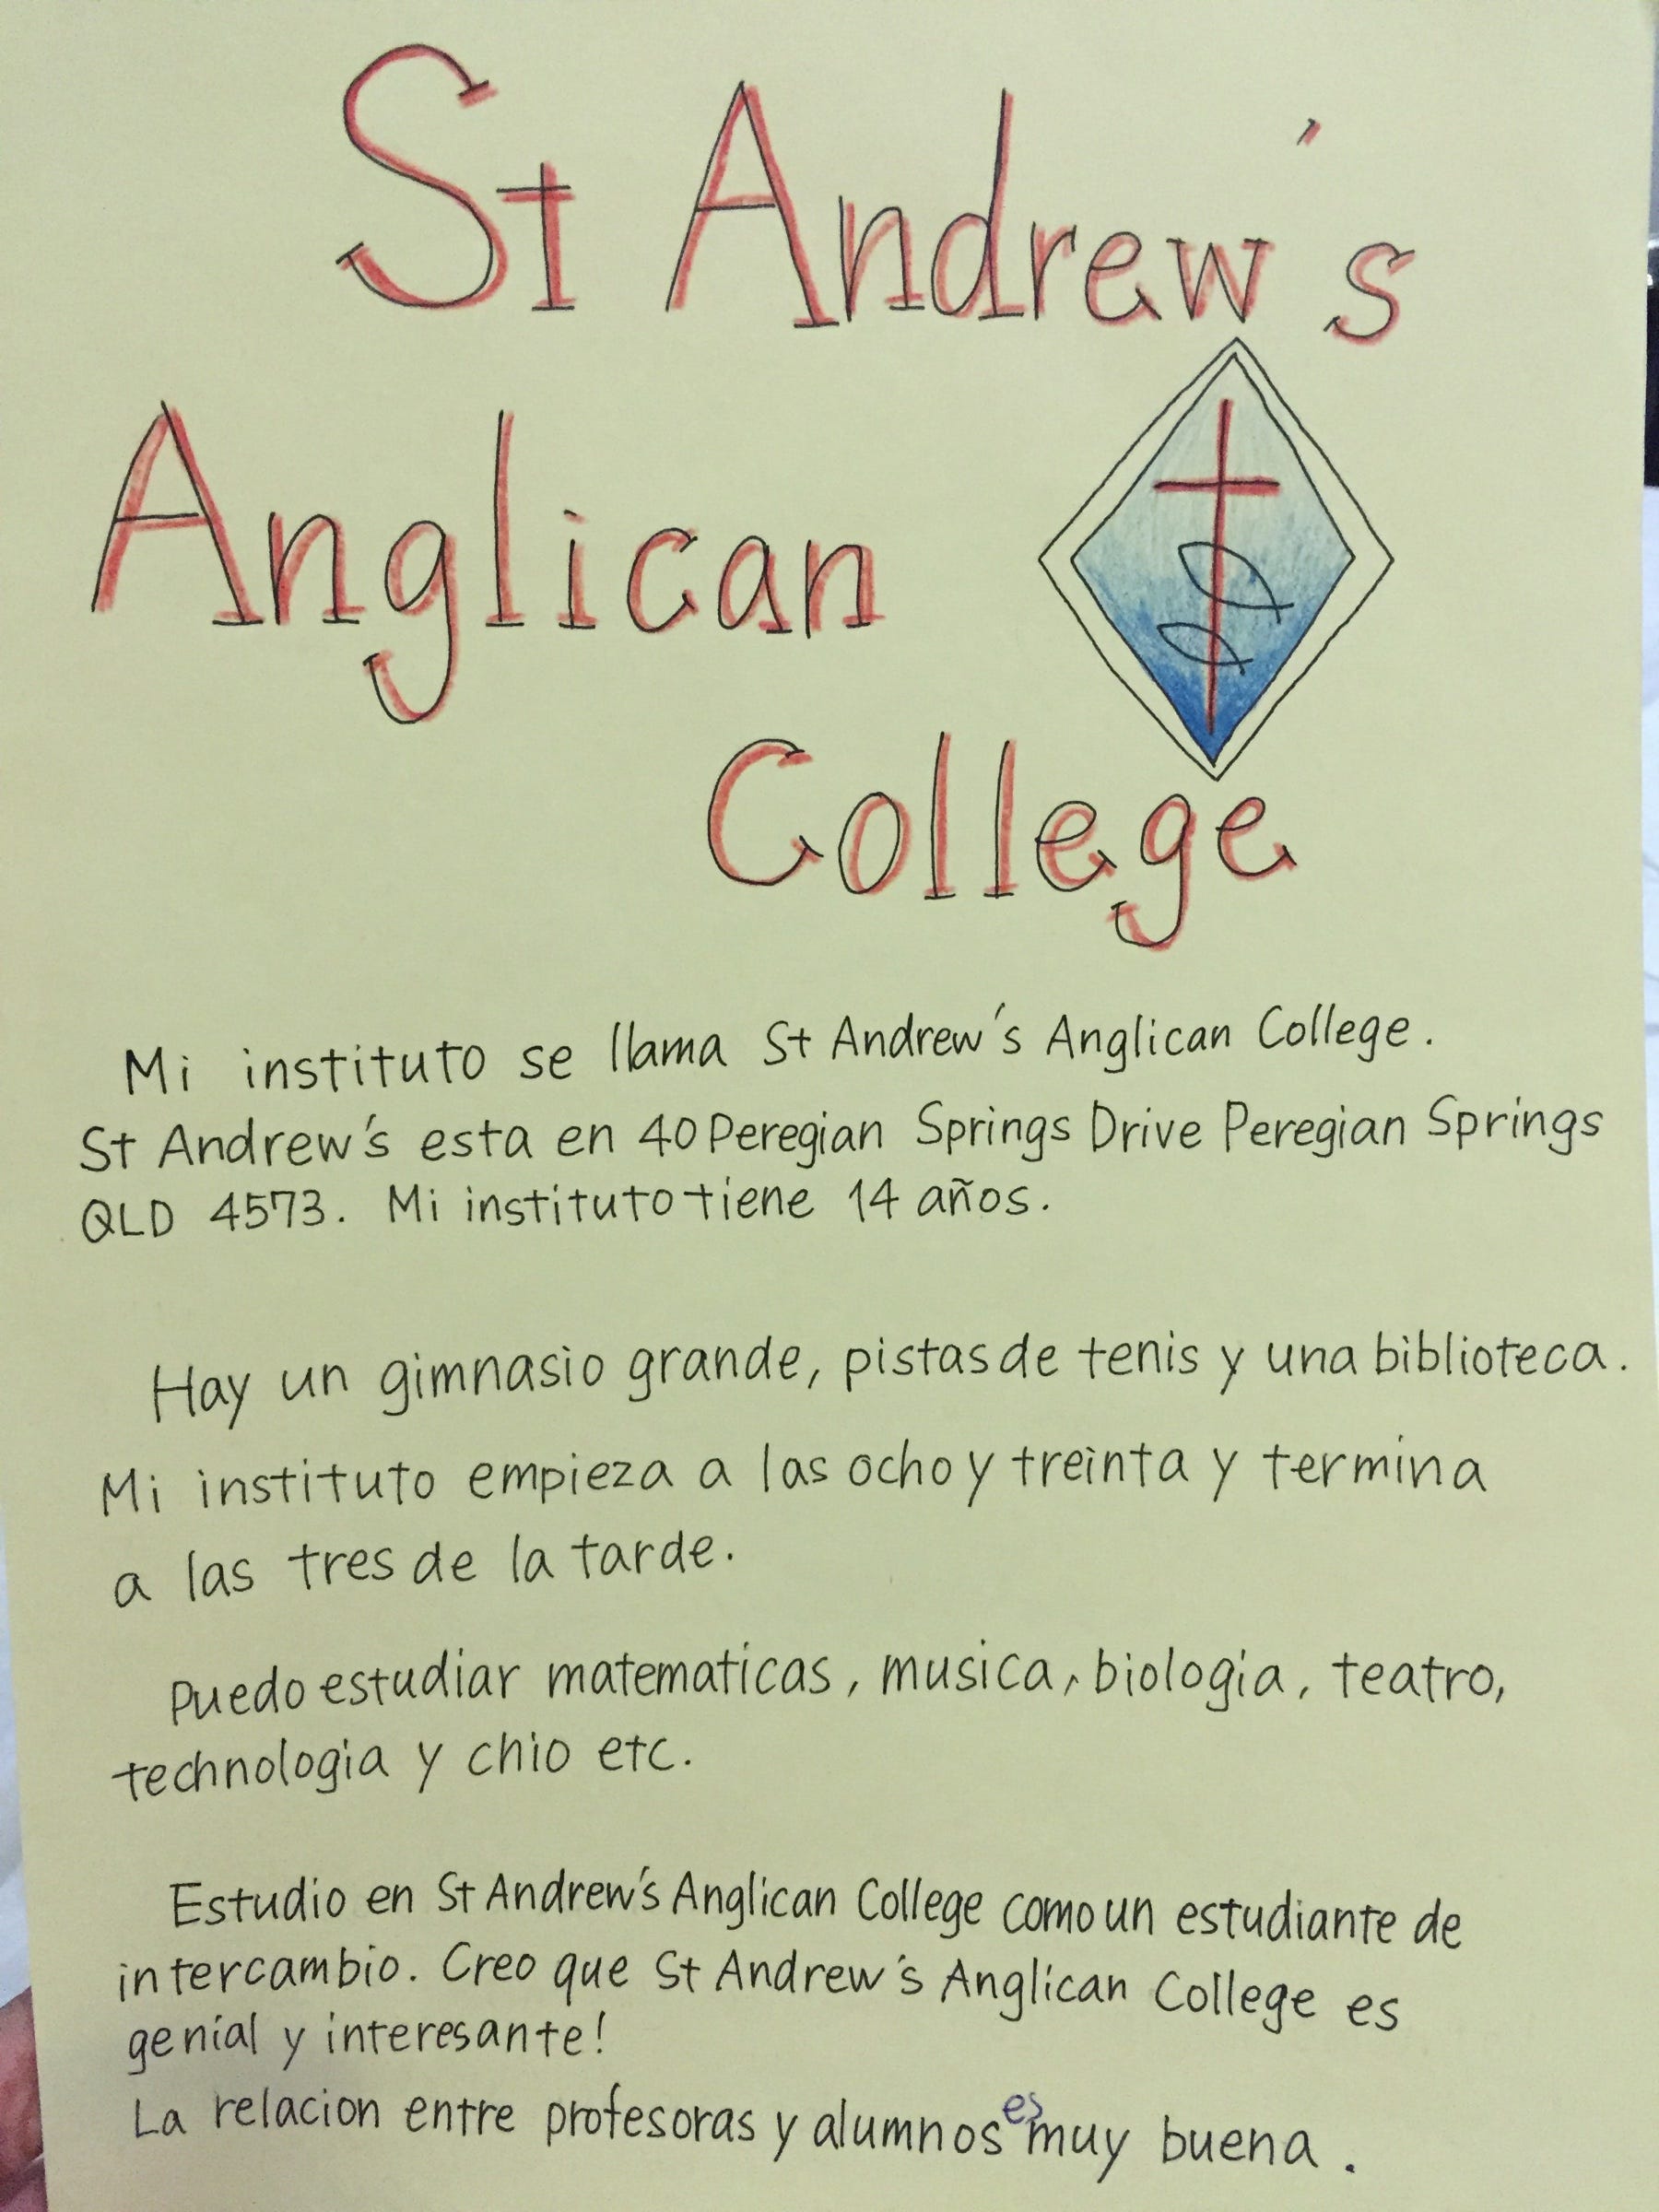 St Andrew's
Anglican
College
Mi instituto se llama St Andrew's Anglican College.
St Andrew's esta en 40 Peregian Springs Drive Peregian Springs
QLD 4573. Mi instituto tiene 14 años.
Hay un gimnasio grande, pistas de tenis y una biblioteca.
Mi instituto empieza a las ocho y treinta y termina
a las tres de la tarde.
Puedo estudiar matematicas, musica, biologia, teatro,
technologia y chio etc.
Estudio en St Andrew's Anglican College como un estudiante de
intercambio. Creo que St Andrew's Anglican College es
genial y interesante!
La relacion entre profesoras y alumnos es muy buena.